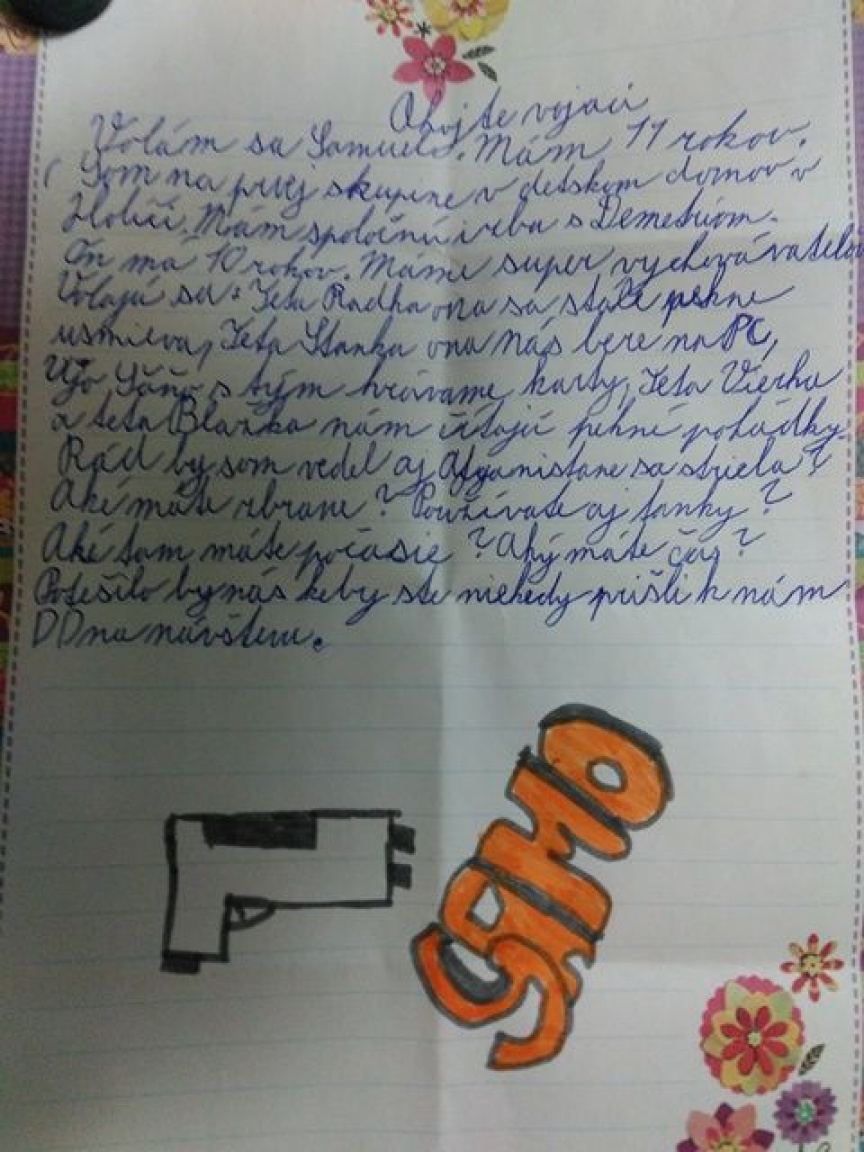 Ahojte vojaci
Volám sa Samuel. Mám 11 rokov.
Som na prvej skupine v detskom domov v
Holíči. Mám spoločnú izba s Demetriom.
On má 10 rokov. Máme super vychovávatelov
Volajú sa: Teta Radka ona sa stále pekne
usmieva, Teta Stanka ona nás bere na PC,
Ujo Šaňo s tým hrávame karty, Teta Vierka
a teta Blažka nám čítajú pekné pohádky.
Rád by som vedel aj Afganistane sa striela?
Aké máte zbrane? Používate aj tanky?
Aké tam máte počasie? Aký máte čas?
Potešilo by nás keby ste niekedy prišli k nám
DD na návštevu.
SAMO